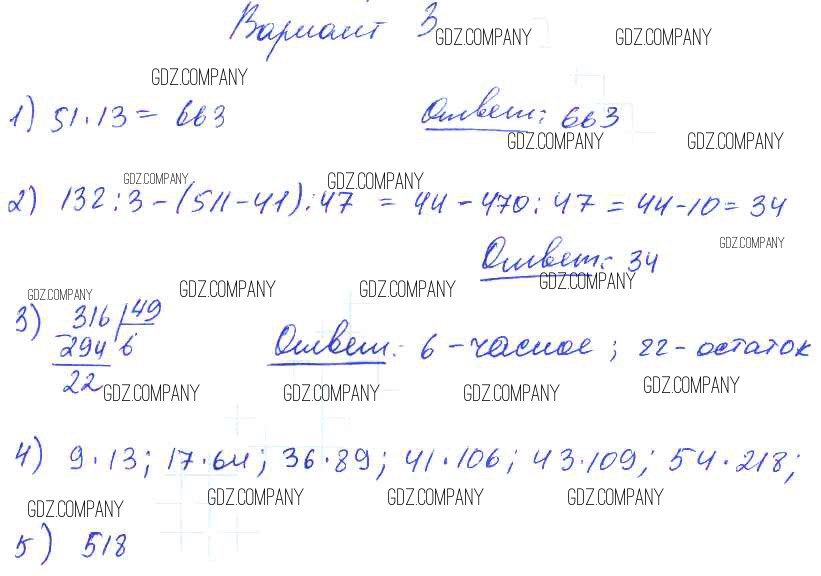 Вариант 3
GDZ.COMPANY GDZ.COMPANY
GDZ.COMPANY
1) 51·13 = 663 Ответ: 663
GDZ.COMPANY GDZ.COMPANY
GDZ.COMPANY GDZ.COMPANY
2) 132:3-(511-41):47 = 44-470:47 = 44-10 = 34
GDZ.COMPANY
Ответ: 34
GDZ.COMPANY GDZ.COMPANY GDZ.COMPANY GDZ.COMPANY
3) 316 49
294 6 Ответ: 6 - часное; 22 - остаток
22
GDZ.COMPANY GDZ.COMPANY GDZ.COMPANY GDZ.COMPANY
4) 9·13; 17·64; 36·89; 41·106; 43·109; 54·218;
GDZ.COMPANY GDZ.COMPANY GDZ.COMPANY GDZ.COMPANY
5) 518